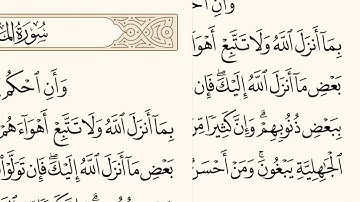 سُورَةُ المَا
وَأَنِ ٱحْكُم
بِمَآ أَنزَلَ ٱللَّهُ وَلَا تَتَّبِعْ أَهْوَآءَهُمْ
بَعْضِ مَآ أَنزَلَ ٱللَّهُ إِلَيْكَ ۖ فَإِن تَوَلَّوْا
وَأَنِ ٱحْ
بِمَآ أَنزَلَ ٱللَّهُ وَلَا تَتَّبِعْ أَهْوَآ
بَعْضِ مَآ أَنزَلَ ٱللَّهُ إِلَيْكَ ۖ فَإِن
بِبَعْضِ ذُنُوبِهِمْ ۗ وَإِنَّ كَثِيرًا مِّنَ
ٱلْجَٰهِلِيَّةِ يَبْغُونَ ۚ وَمَنْ أَحْسَنُ